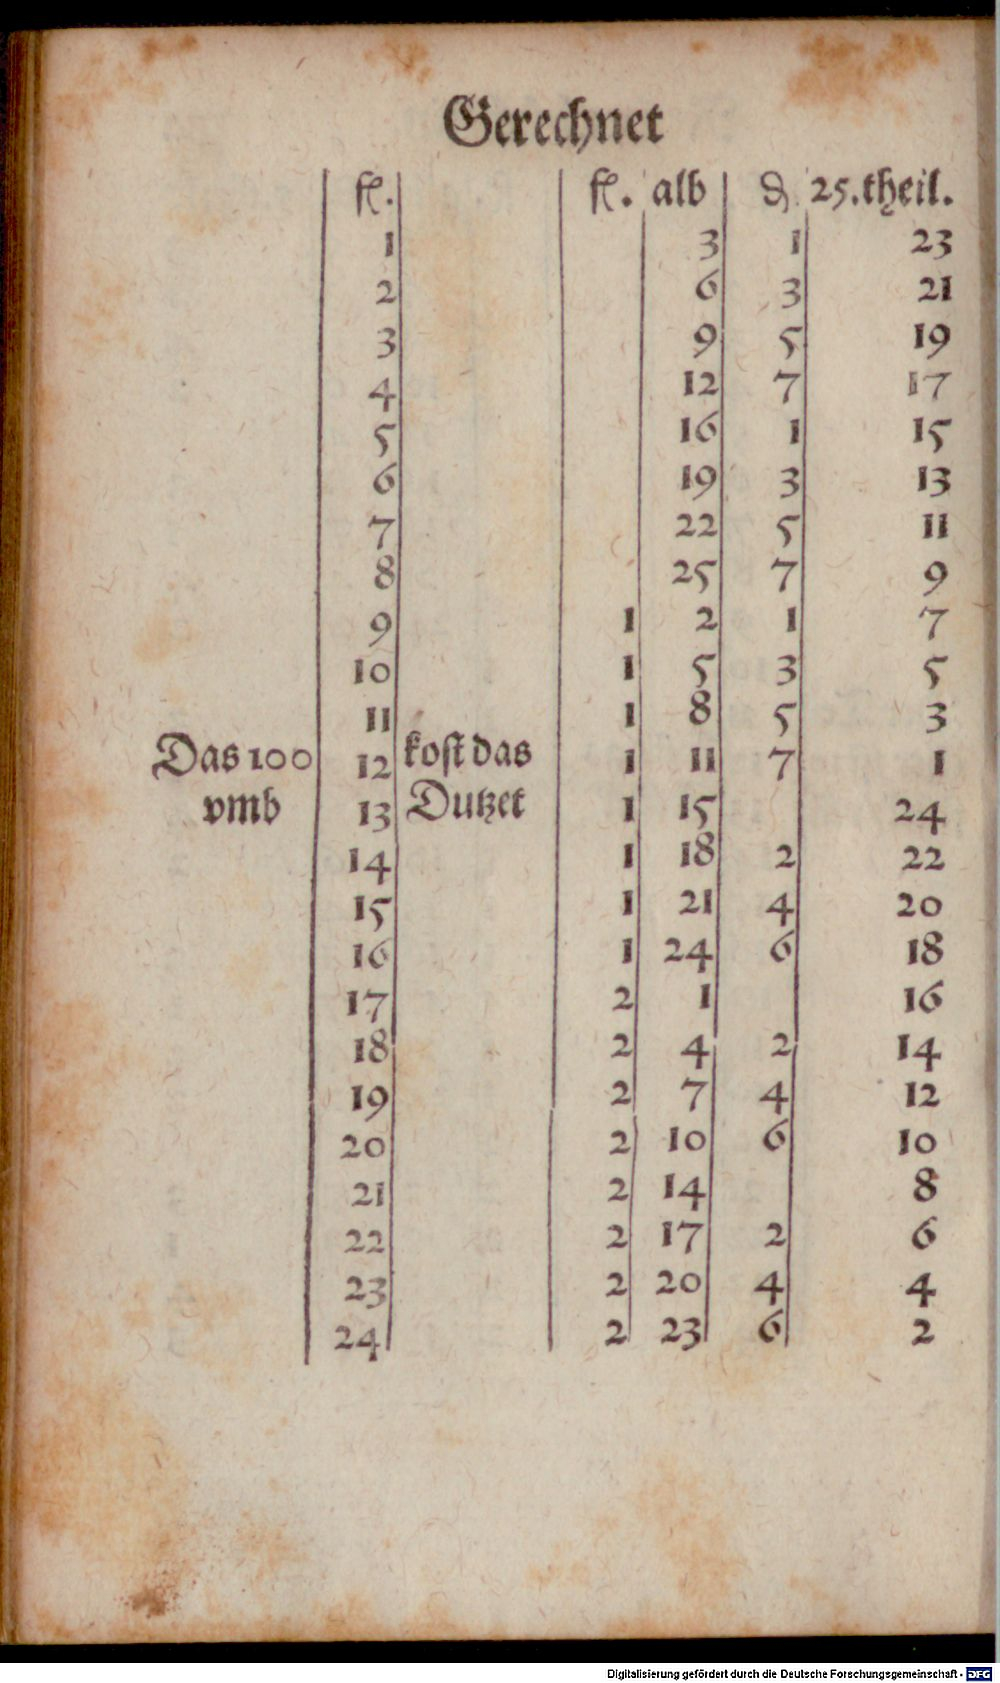 Gerechnet
fl. fl. alb ₰ 25.theil.
1 3 1 23
2 6 3 21
3 9 5 19
4 12 7 17
5 16 1 15
6 19 3 13
7 22 5 11
8 25 7 9
9 1 2 1 7
10 1 5 3 5
11 1 8 5 3
Das 100 12 kost das 1 11 7 1
vmb 13 Dutzet 1 15 24
14 1 18 2 22
15 1 21 4 20
16 1 24 6 18
17 2 1 16
18 2 4 2 14
19 2 7 4 12
20 2 10 6 10
21 2 14 8
22 2 17 2 6
23 2 20 4 4
24 2 23 6 2
Digitalisierung gefördert durch die Deutsche Forschungsgemeinschaft - DFG